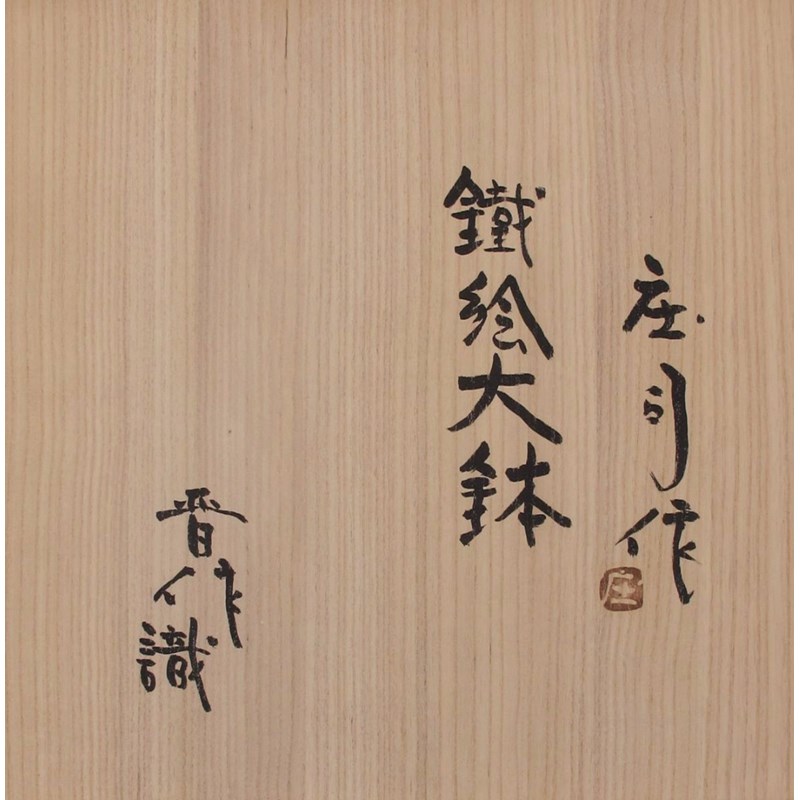 庄司作
庄
鐵絵大鉢
晋作識